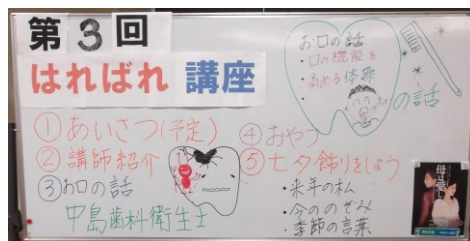 第3回
はればれ講座
お口の話
・口の機能を
高める体操
・
・
の話
①あいさつ(予定)
②講師紹介
③お口の話
中島歯科衛生士
④おやつ
⑤七夕飾りをしよう
・来年の私
・今ののぞみ
・季節の言葉